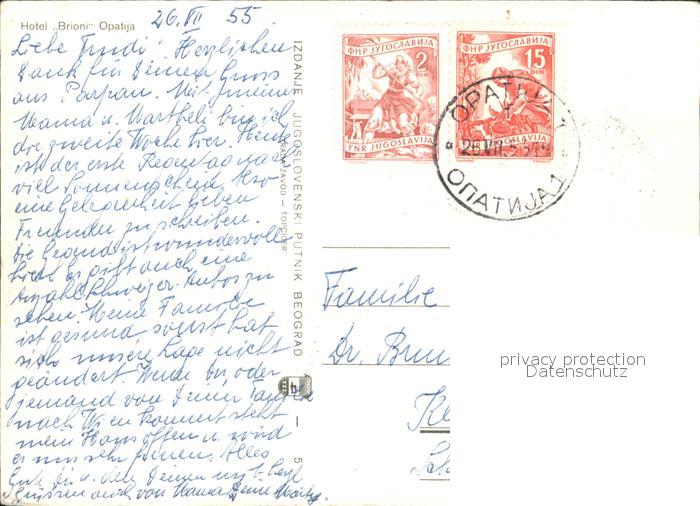 Hotel „Brioni" Opatija
26. VII 55
Liebe Trudi! Herzlichen
Dank für Deinen Gruss
aus Parpan. Mit meiner
Mama u. Martheli bin ich
die zweite Woche hier. Heute
ist der erste Regentag nach
viel Sonnenschein. Also
eine Gelegenheit lieben
Freunden zu schreiben.
Die Gegend ist wundervoll
es gibt auch eine
Anzahl Schweizer Autos zu
sehen. Meine Familie
ist gesund, sonst hat
sich unsere Lage nicht
geändert. Wenn Du oder
jemand von Deiner Familie
nach Wien kommt steht
mein Haus offen u. wird
es uns sehr freuen. Alles
Gute Dir u. den Deinen
Grüssen auch von Mama Deine
IZDANJE JUGOSLOVENSKI PUTNIK BEOGRAD
ZAVOD — TOPČIDER
ФНР ЈУГОСЛАВИЈА
2
DIN
FNR JUGOSLAVIJA
ФНР ЈУГОСЛАВИЈА
15
DIN
JUGOSLAVIJA
OPATIJA 1
26.VII.55
ОПАТИЈА 1
Familie
Dr.
privacy protection
Datenschutz